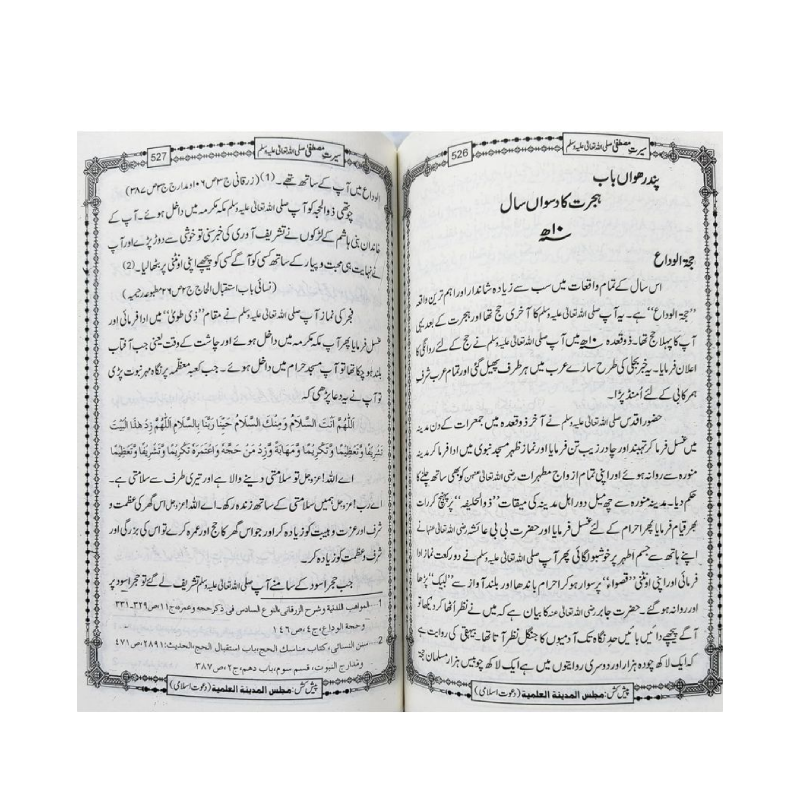 سیرتِ مصطفیٰ صلی اللہ تعالیٰ علیہ وسلم
526
پندرھواں باب
ہجرت کا دسواں سال
۱۰ھ
حجۃ الوداع
اس سال کے تمام واقعات میں سب سے زیادہ شاندار اور اہم ترین واقعہ
”حجۃ الوداع“ ہے۔ یہ آپ صلی اللہ تعالیٰ علیہ وسلم کا آخری حج تھا اور ہجرت کے بعد یہی
آپ کا پہلا حج تھا۔ ذوقعدہ ۱۰ھ میں آپ صلی اللہ تعالیٰ علیہ وسلم نے حج کے لئے روانگی کا
اعلان فرمایا۔ یہ خبر بجلی کی طرح سارے عرب میں ہر طرف پھیل گئی اور تمام عرب شرف
ہمرکابی کے لئے اُمنڈ پڑا۔
حضور اقدس صلی اللہ تعالیٰ علیہ وسلم نے آخر ذوقعدہ میں جمعرات کے دن مدینہ
میں غسل فرما کر تہبند اور چادر زیب تن فرمایا اور نماز ظہر مسجد نبوی میں ادا فرما کر مدینہ
منورہ سے روانہ ہوئے اور اپنی تمام ازواج مطہرات رضی اللہ تعالیٰ عنہن کو بھی ساتھ چلنے کا
حکم دیا۔ مدینہ منورہ سے چھ میل دور اہل مدینہ کی میقات ”ذوالحلیفہ“ پر پہنچ کر رات
بھر قیام فرمایا پھر احرام کے لئے غسل فرمایا اور حضرت بی بی عائشہ رضی اللہ تعالیٰ عنہا نے
اپنے ہاتھ سے جسم اطہر پر خوشبو لگائی پھر آپ صلی اللہ تعالیٰ علیہ وسلم نے دو رکعت نماز ادا
فرمائی اور اپنی اونٹنی ”قصواء“ پر سوار ہو کر احرام باندھا اور بلند آواز سے ”لبیک“ پڑھا
اور روانہ ہو گئے۔ حضرت جابر رضی اللہ تعالیٰ عنہ کا بیان ہے کہ میں نے نظر اُٹھا کر دیکھا تو
آگے پیچھے دائیں بائیں حدِ نگاہ تک آدمیوں کا جنگل نظر آتا تھا۔ بیہقی کی روایت ہے
کہ ایک لاکھ چودہ ہزار اور دوسری روایتوں میں ہے ایک لاکھ چوبیس ہزار مسلمان حجۃ
پیش کش: مجلس المدینة العلمیة (دعوت اسلامی)
سیرتِ مصطفیٰ صلی اللہ تعالیٰ علیہ وسلم
527
الوداع میں آپ کے ساتھ تھے۔ (1) (زرقانی ج۳ص۱۰۶ و مدارج ج۲ص۳۸۷)
چوتھی ذوالحجہ کو آپ صلی اللہ تعالیٰ علیہ وسلم مکہ مکرمہ میں داخل ہوئے۔ آپ کے
خاندان بنی ہاشم کے لڑکوں نے تشریف آوری کی خبر سنی تو خوشی سے دوڑ پڑے اور آپ
نے نہایت ہی محبت و پیار کے ساتھ کسی کو آگے کسی کو پیچھے اپنی اونٹنی پر بٹھا لیا۔ (2)
(نسائی باب استقبال الحاج ج۲ص۲۶ مطبوعہ رحیمیہ)
فجر کی نماز آپ صلی اللہ تعالیٰ علیہ وسلم نے مقام ”ذی طویٰ“ میں ادا فرمائی اور
غسل فرمایا پھر آپ مکہ مکرمہ میں داخل ہوئے اور چاشت کے وقت یعنی جب آفتاب
بلند ہو چکا تھا تو آپ مسجد حرام میں داخل ہوئے۔ جب کعبہ معظمہ پر نگاہ مہر نبوت پڑی
تو آپ نے یہ دعا پڑھی کہ
اَللّٰهُمَّ اَنْتَ السَّلَامُ وَمِنْكَ السَّلَامُ حَيِّنَا رَبَّنَا بِالسَّلَامِ اَللّٰهُمَّ زِدْ هٰذَا الْبَيْتَ
تَشْرِيْفًا وَّتَعْظِيْمًا وَّتَكْرِيْمًا وَّمَهَابَةً وَّزِدْ مَنْ حَجَّهٗ وَاعْتَمَرَهٗ تَكْرِيْمًا وَّتَشْرِيْفًا وَّتَعْظِيْمًا
اے اللہ! عزوجل تو سلامتی دینے والا ہے اور تیری طرف سے سلامتی ہے۔
اے رب! عزوجل ہمیں سلامتی کے ساتھ زندہ رکھ۔ اے اللہ! عزوجل اس گھر کی عظمت و
شرف اور عزت و ہیبت کو زیادہ کر اور جو اس گھر کا حج اور عمرہ کرے تو اس کی بزرگی اور
شرف و عظمت کو زیادہ کر۔
جب حجرِ اسود کے سامنے آپ صلی اللہ تعالیٰ علیہ وسلم تشریف لے گئے تو حجرِ اسود پر
1 المواهب اللدنیة و شرح الزرقانی، النوع السادس فی ذکر حجه و عمره، ج۱۱، ص۳۲۹۔۳۳۱
و حجة الوداع، ج۴، ص۱۴۶
2 سنن النسائی، کتاب مناسك الحج، باب استقبال الحج، الحدیث: ۲۸۹۱، ص۴۷۱
و مدارج النبوت، قسم سوم، باب دهم، ج۲، ص۳۸۷
پیش کش: مجلس المدینة العلمیة (دعوت اسلامی)